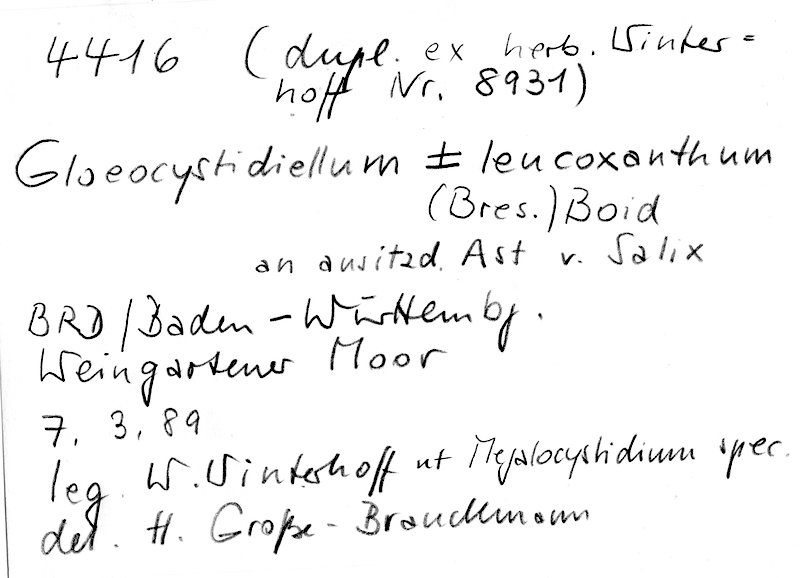 4416 (dupl. ex herb. Winter=
hoff Nr. 8931)
Gloeocystidiellum ± leucoxanthum
(Bres.) Boid
an ansitzd. Ast v. Salix
BRD/Baden-Württembg.
Weingartener Moor
7. 3. 89
leg. W. Winterhoff ut Megalocystidium spec.
det. H. Große-Brauckmann